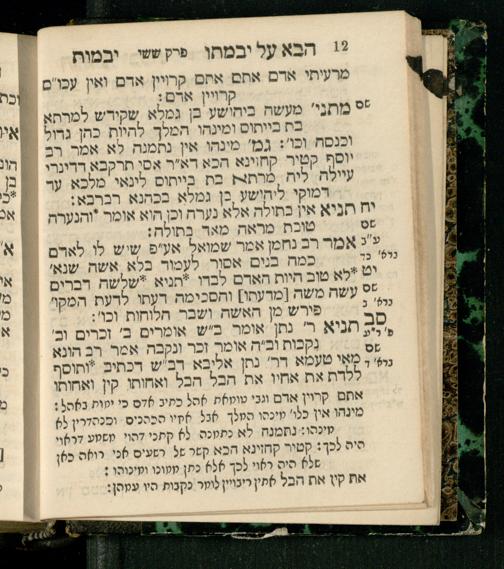 12 הבא על יבמתו פרק ששי יבמות
מרעיתי אדם אתם אתם קרויין אדם ואין עכו״ם
קרויין אדם:
שם מתני׳ מעשה ביהושע בן גמלא שקידש למרתא
בת בייתוס ומינהו המלך להיות כהן גדול
וכנסה וכו׳: גמ׳ מינהו אין נתמנה לא אמר רב
יוסף קטיר קחזינא הכא דא״ר אסי תרקבא דדינרי
עיילה ליה מרתא בת בייתוס לינאי מלכא עד
דמוקי ליהושע בן גמלא בכהנא רברבא:
יח תניא אין בתולה אלא נערה וכן הוא אומר *והנערה
שם טובת מראה מאד בתולה:
ע״ב אמר רב נחמן אמר שמואל אע״פ שיש לו לאדם
כמה בנים אסור לעמוד בלא אשה שנא׳
יט *לא טוב היות האדם לבדו *תניא *שלשה דברים
שם עשה משה [מדעתו] והסכימה דעתו לדעת המקו׳
פירש מן האשה ושבר הלוחות וכו׳:
סב תניא ר׳ נתן אומר ב״ש אומרים ב׳ זכרים וב׳
נקבות וב״ה אומר זכר ונקבה אמר רב הונא
שם מאי טעמא דר׳ נתן אליבא דב״ש דכתיב *ותוסף
ללדת את אחיו את הבל הבל ואחותו קין ואחותו
אתם קרויין אדם וגבי טומאת אהל כתיב אדם כי ימות באהל:
מינהו אין כלו׳ מינהו המלך אבל אחיו הכהנים וסנהדרין לא
מינהו: נתמנה לא כתמנה לא קתני דהוי משמע דראוי
היה לכך: קטיר קחזינא הכא קשר של רשעים אני רואה כאן
שלא היה ראוי לכך אלא נתן ממונו ומינוהו:
את קין את הבל אתין ריבויין לומר נקבות היו עמהן: